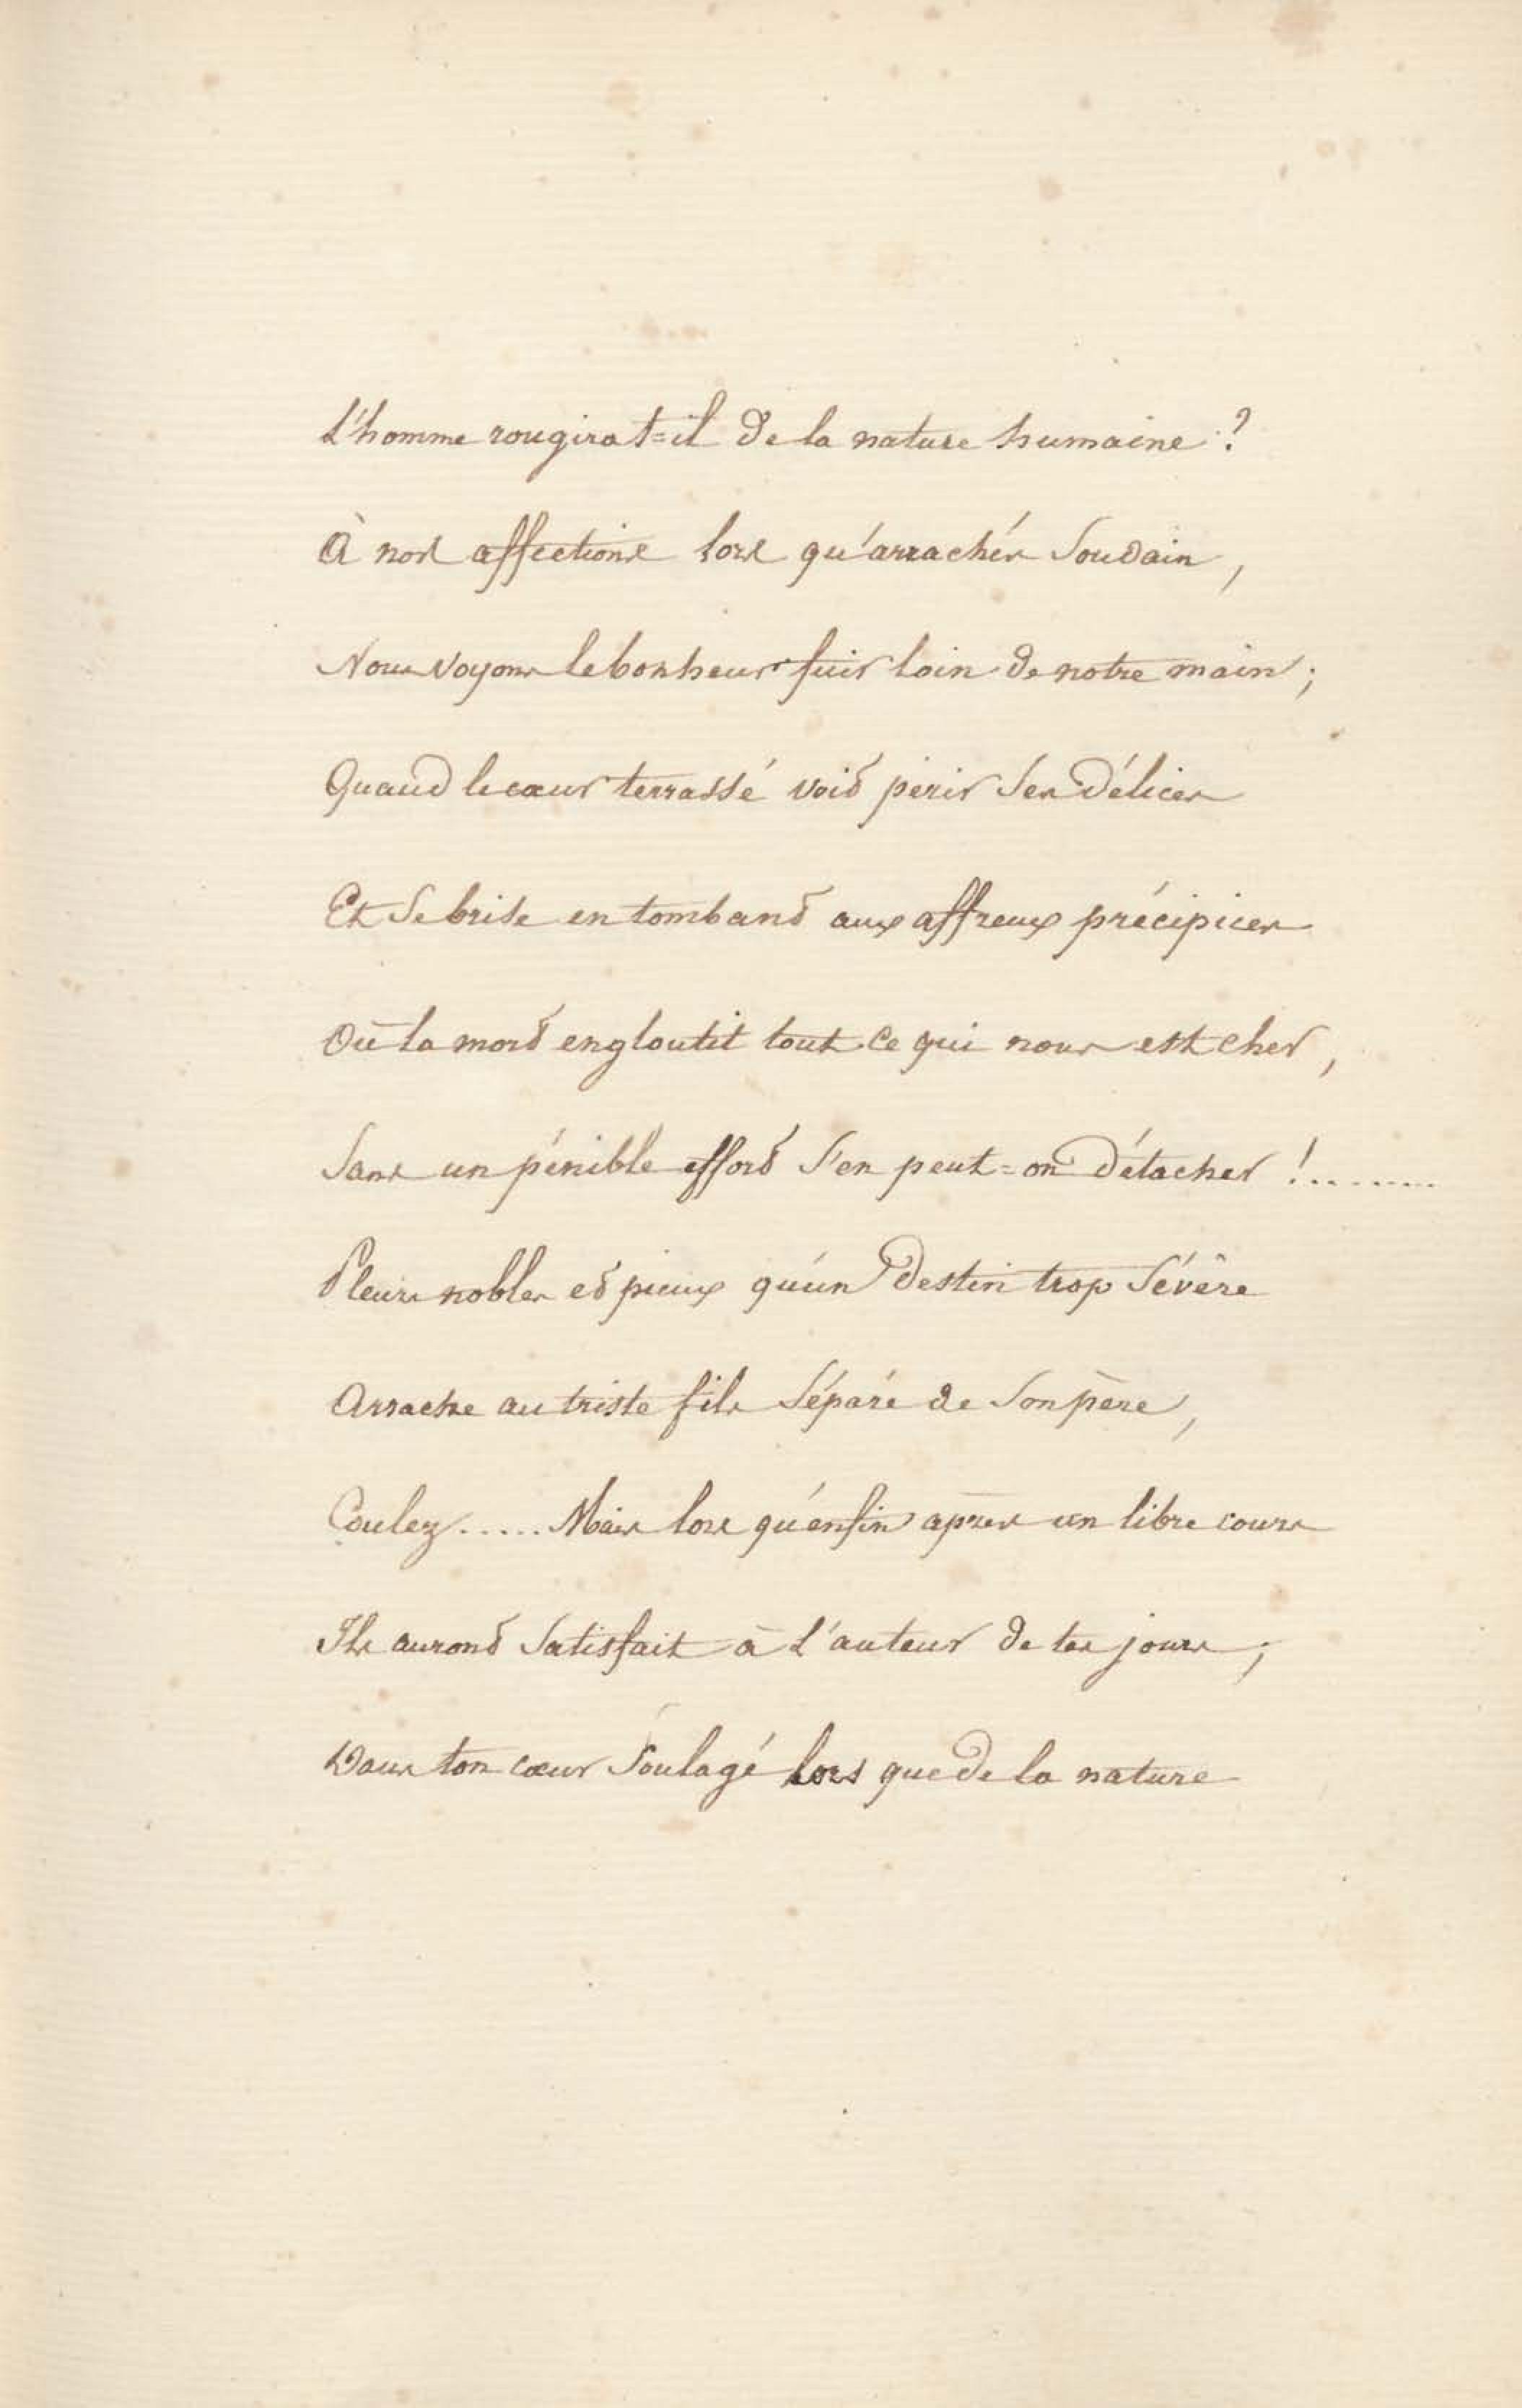 L'homme rougira t=il de la nature humaine ?
À nos affections lors qu'arrachés soudain,
Nous voyons le bonheur fuir loin de notre main ;
Quand le cœur terrassé voit périr ses délices
Et se brise en tombant aux affreux précipices
Où la mort engloutit tout ce qui nous est cher,
Sans un pénible effort s'en peut=on détacher !........
Pleurs nobles et pieux qu'un destin trop sévère
Arrache au triste fils séparé de son père,
Coulez..... Mais lors qu'enfin après un libre cours
Ils auront satisfait à l'auteur de tes jours ;
Dans ton cœur soulagé lors que de la nature